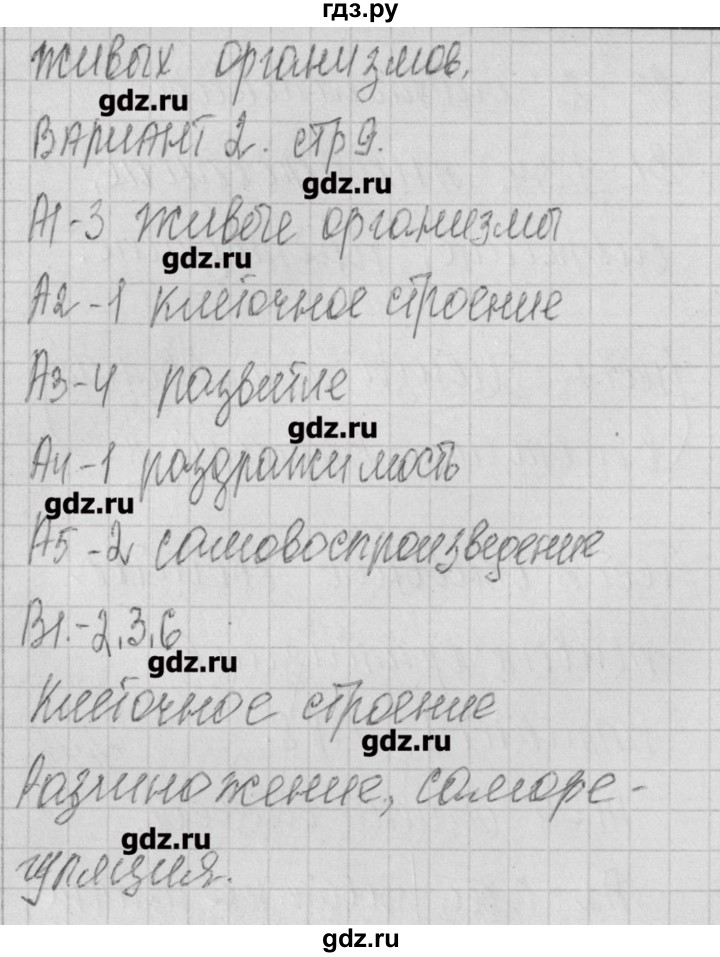 гдз.ру
живых организмов.
gdz.ru
Вариант 2. стр 9.
gdz.ru
А1-3 живые организмы
gdz.ru
А2-1 клеточное строение
А3-4 развитие
gdz.ru
А4-1 раздражимость
gdz.ru
А5-2 самовоспроизведение
В1.-2,3,6
gdz.ru
Клеточное строение
gdz.ru
Размножение, саморе-
gdz.ru
гуляция.
gdz.ru